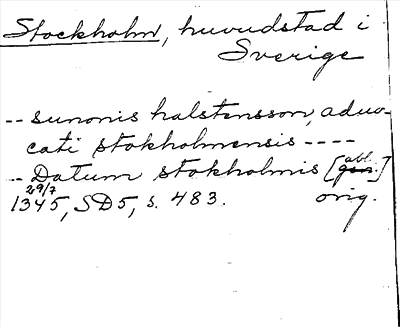 Stockholm, huvudstad i
Sverige
-- sunonis halstensson, advo-
cati stokholmensis ----
-- Datum stokholmis [gen. abl.]
29/7
1345, SD5, s. 483. orig.